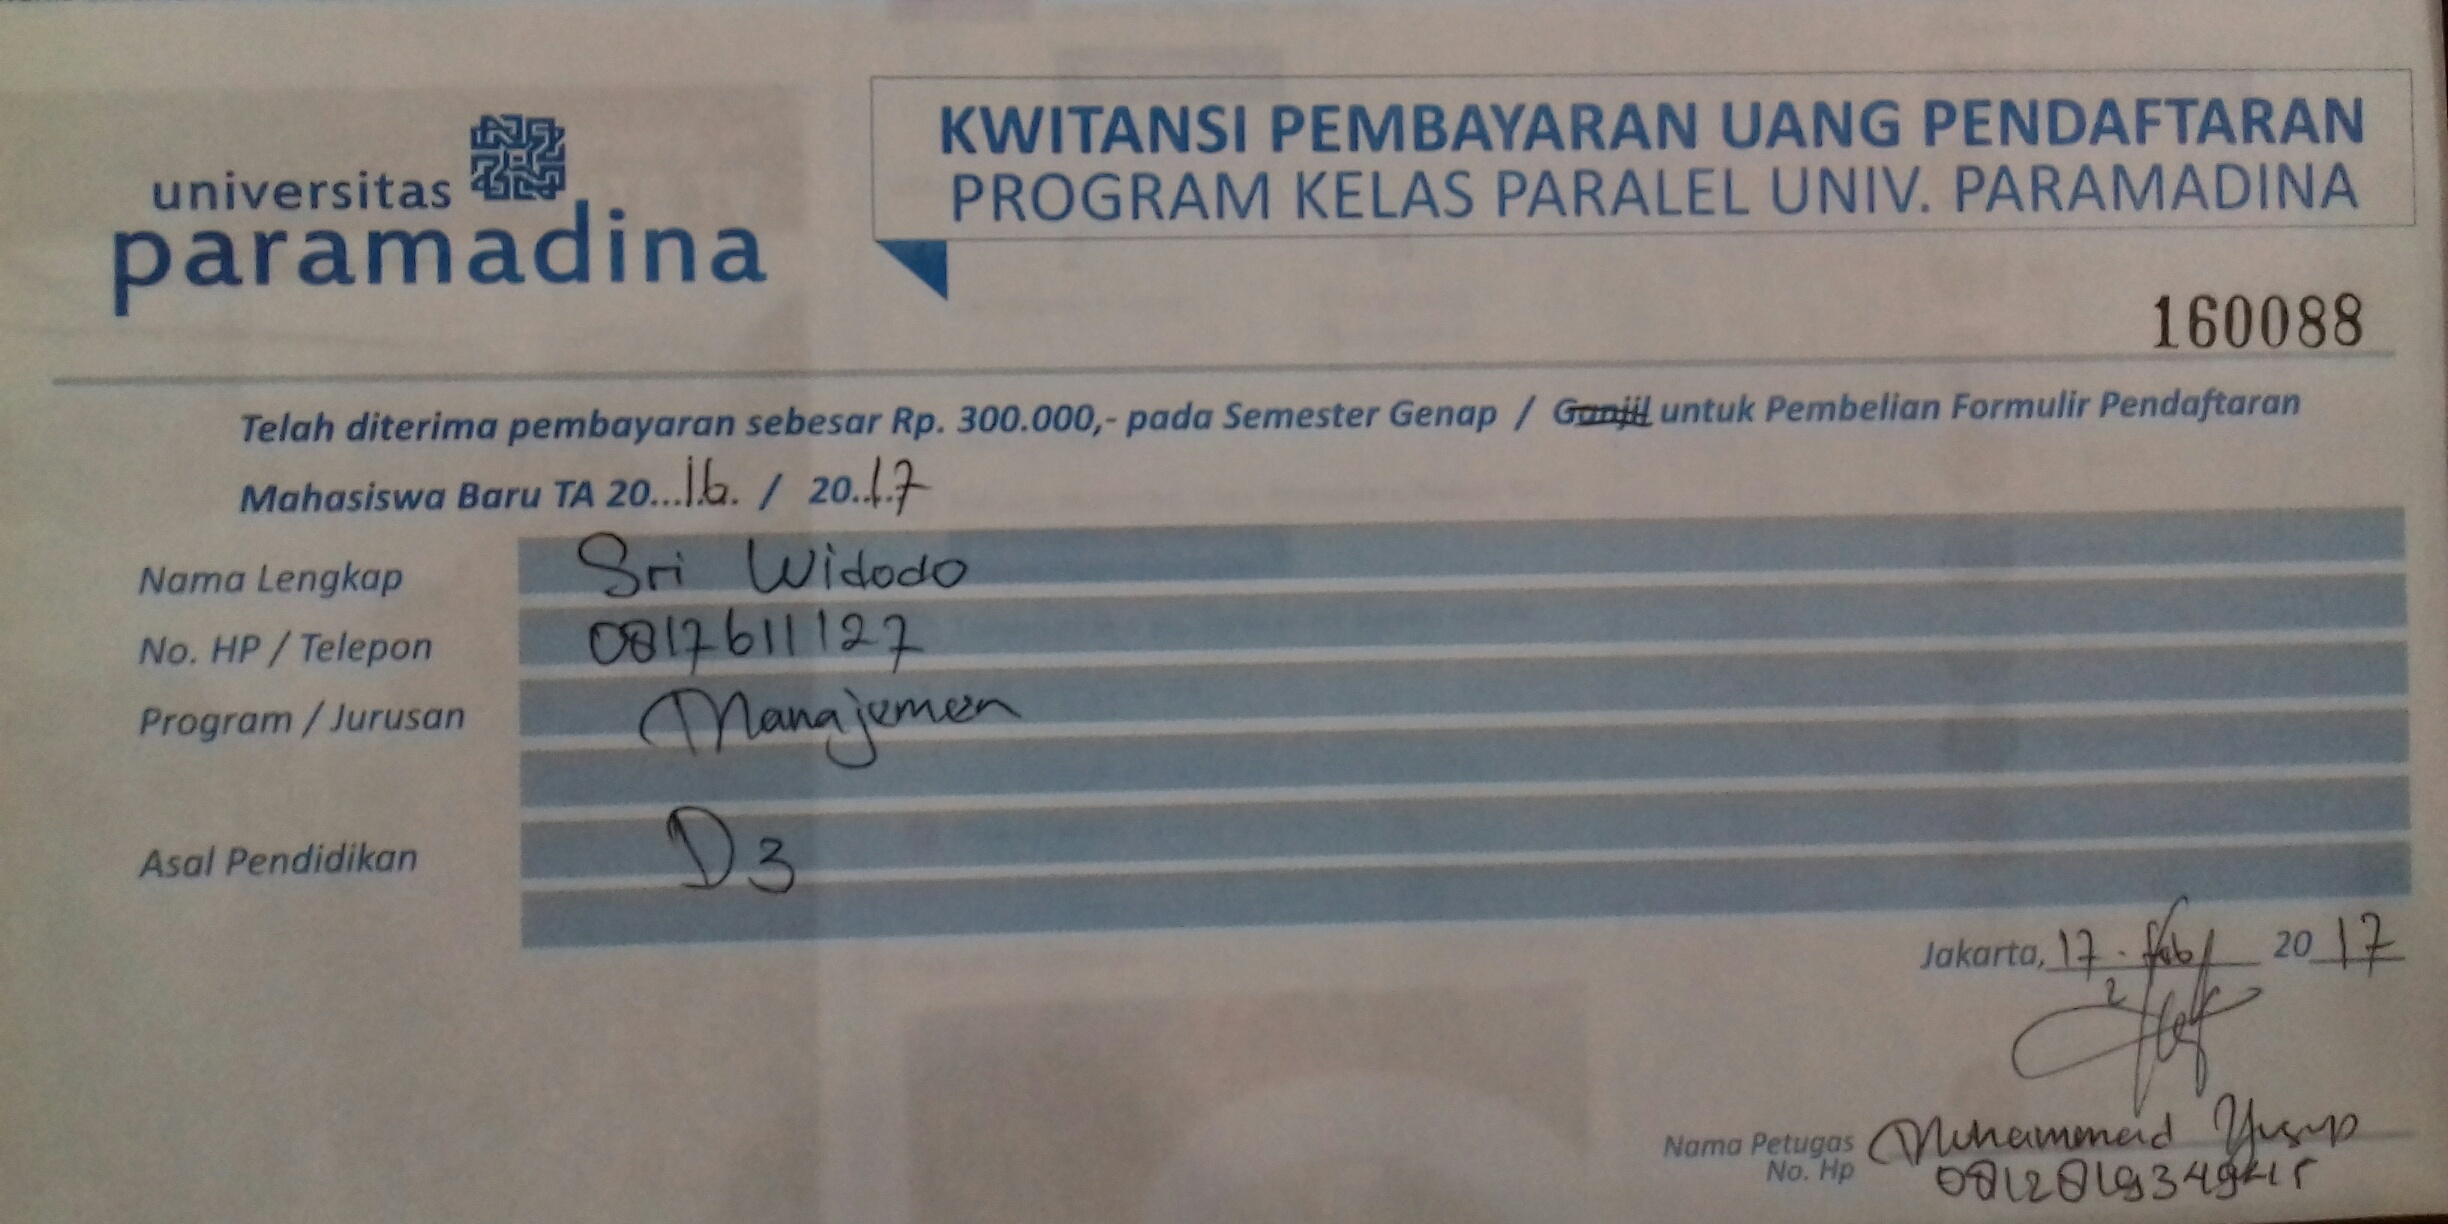 universitas
paramadina
KWITANSI PEMBAYARAN UANG PENDAFTARAN
PROGRAM KELAS PARALEL UNIV. PARAMADINA
160088
Telah diterima pembayaran sebesar Rp. 300.000,- pada Semester Genap / Ganjil untuk Pembelian Formulir Pendaftaran
Mahasiswa Baru TA 20...16. / 20..17
Nama Lengkap Sri Widodo
No. HP / Telepon 0817611127
Program / Jurusan Manajemen
Asal Pendidikan D3
Jakarta, 17 . Feb 2017
Nama Petugas Muhammad Yusup
No. Hp